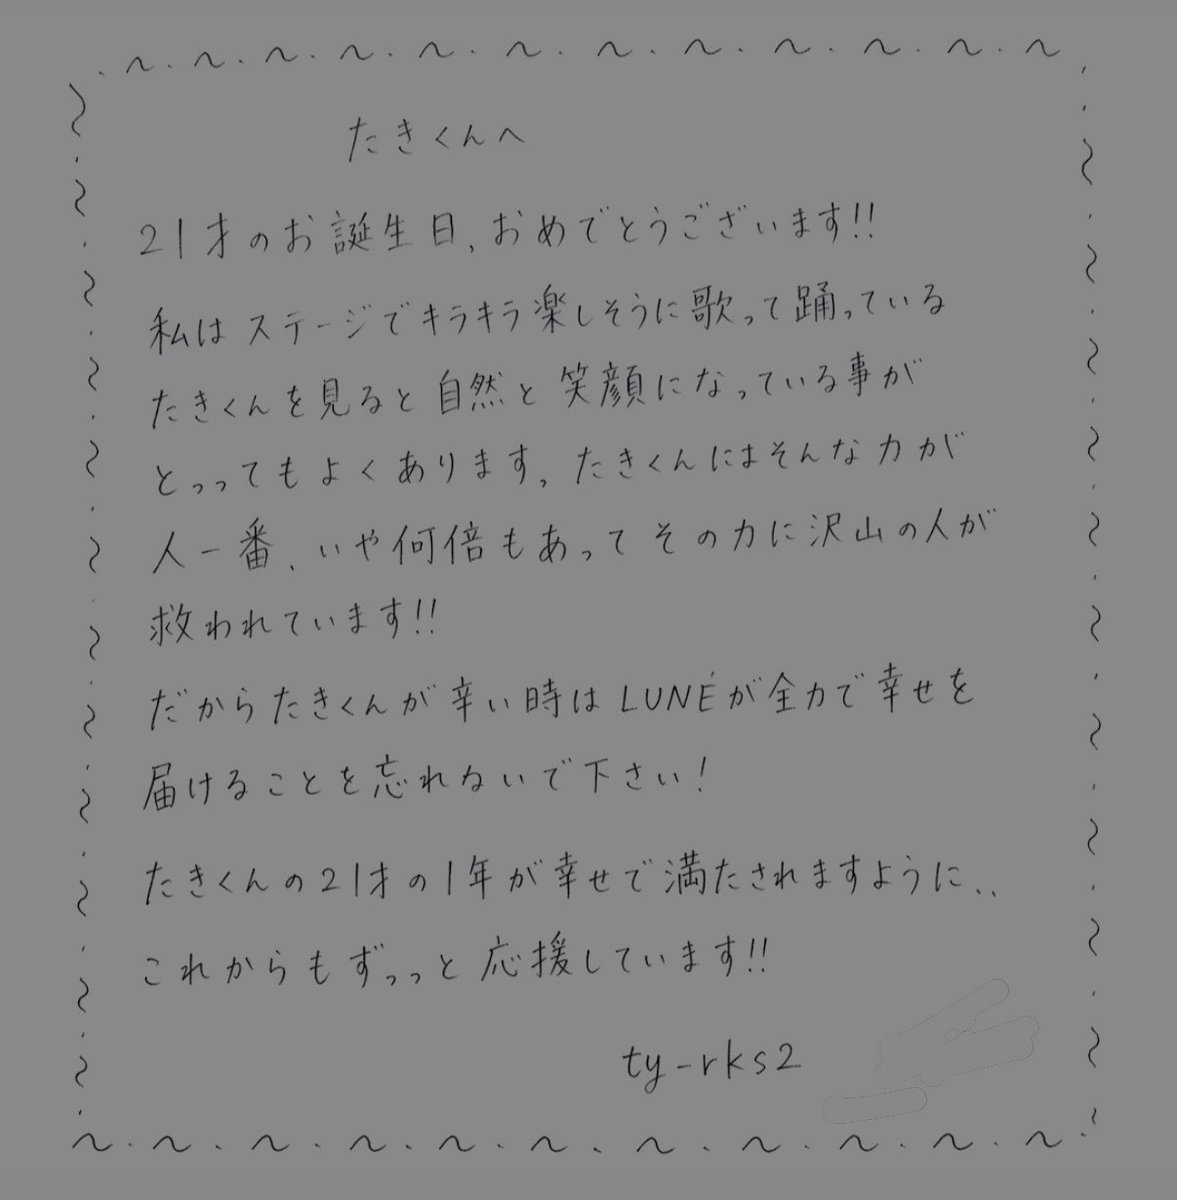 たきくんへ
21才のお誕生日、おめでとうございます!!
私はステージでキラキラ楽しそうに歌って踊っている
たきくんを見ると自然と笑顔になっている事が
とっってもよくあります。たきくんにはそんな力が
人一番、いや何倍もあってその力に沢山の人が
救われています!!
だからたきくんが辛い時はLUNÉが全力で幸せを
届けることを忘れないで下さい!
たきくんの21才の1年が幸せで満たされますように..
これからもずっっと応援しています!!
ty-rks2